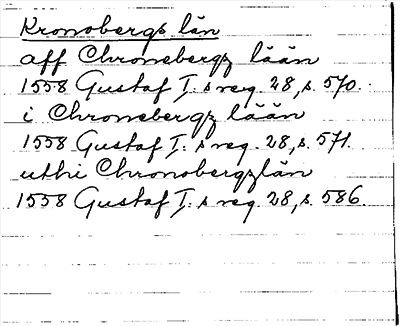 Kronobergs län
aff Chronebergz lään
1558 Gustaf I:s reg. 28, s. 570.
i Chronebergz lään
1558 Gustaf I:s reg. 28, s. 571.
uthi Chronobergzlän
1558 Gustaf I:s reg. 28, s. 586.